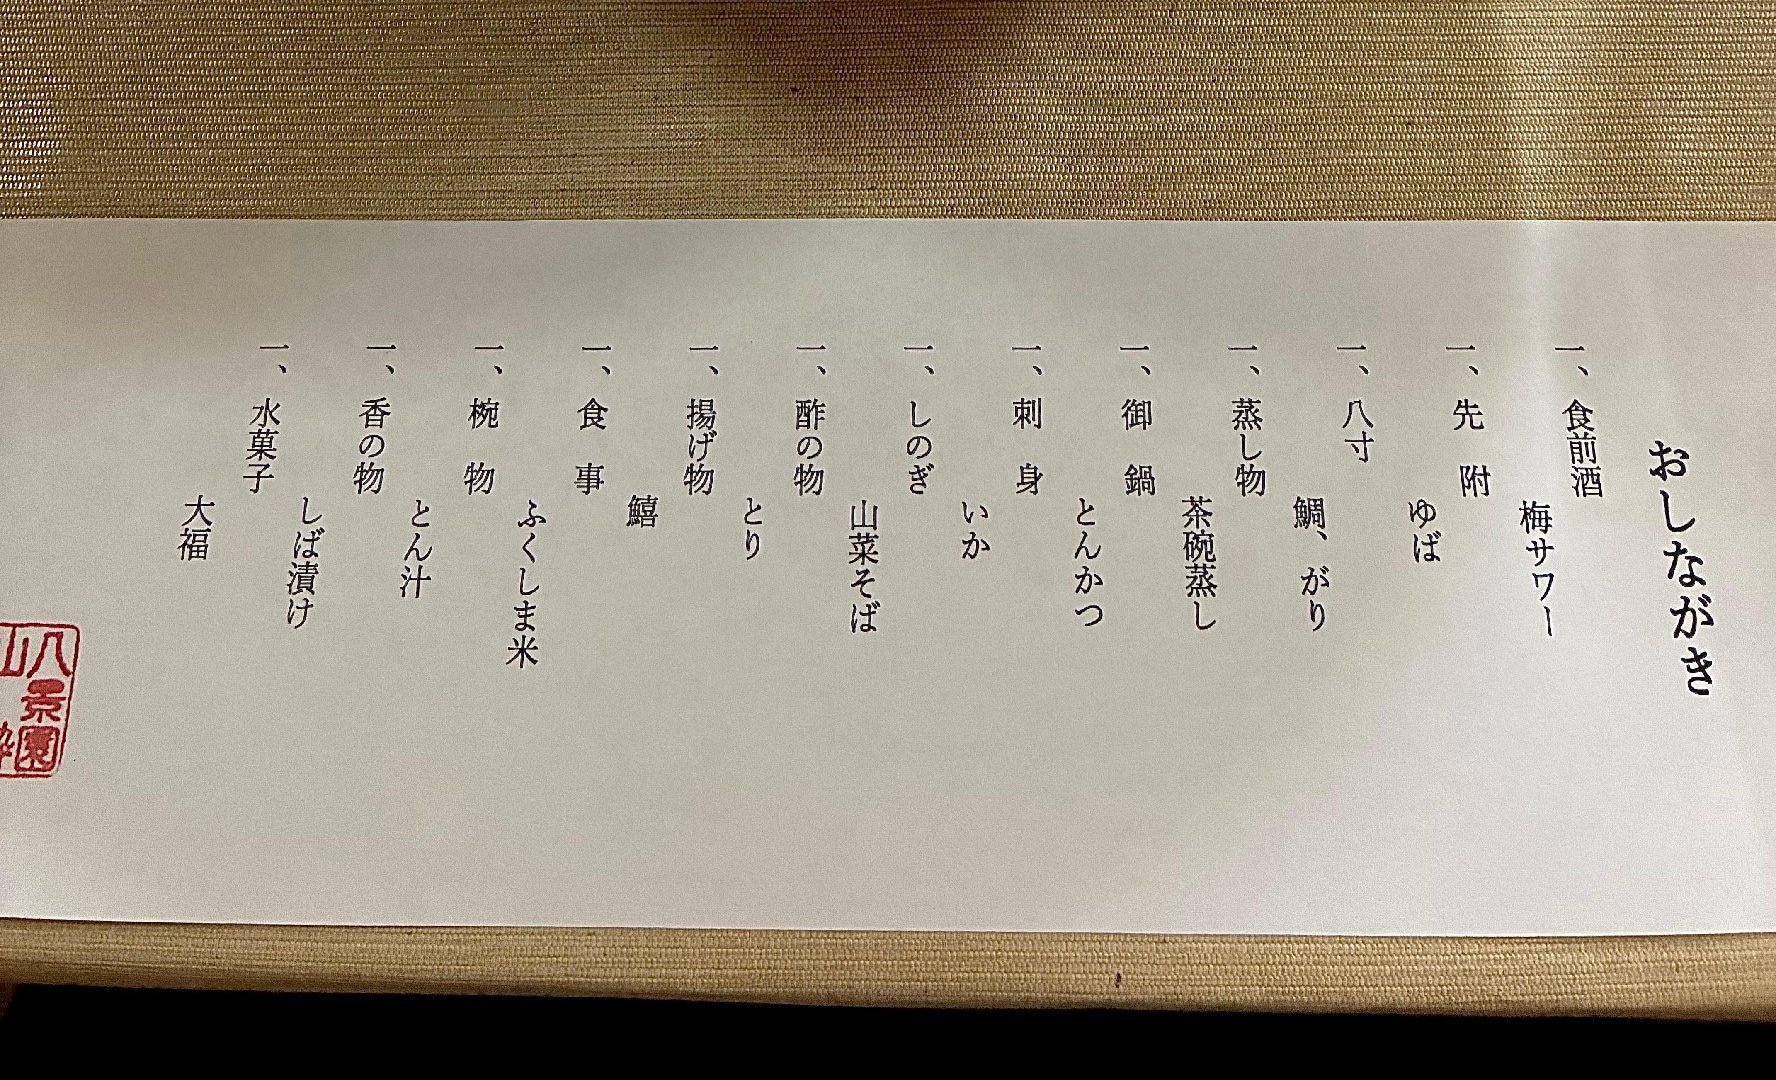 おしながき
一、食前酒
梅サワー
一、先 附
ゆば
一、八寸
鯛、がり
一、蒸し物
茶碗蒸し
一、御 鍋
とんかつ
一、刺 身
いか
一、しのぎ
山菜そば
一、酢の物
とり
一、揚げ物
鱚
一、食 事
ふくしま米
一、椀 物
とん汁
一、香の物
しば漬け
一、水菓子
大福
八景園